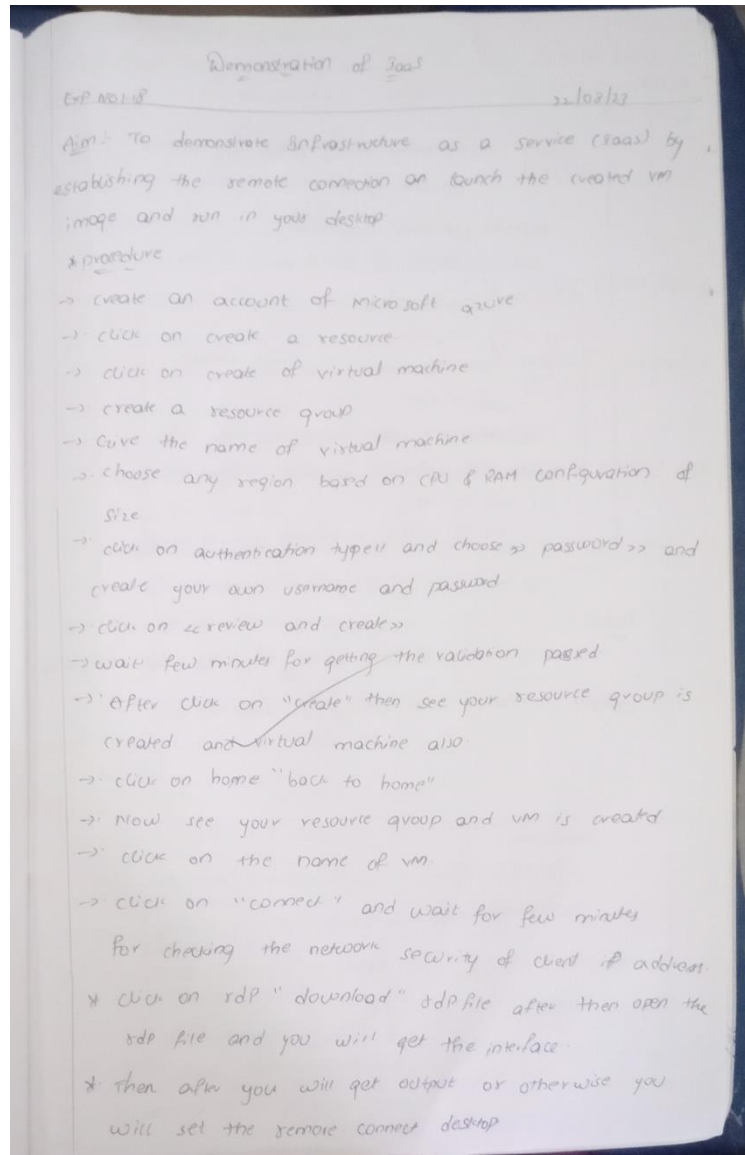 Demonstration of IaaS
Exp NO: 18
22/08/23
Aim:- To demonstrate Infrastructure as a service (IaaS) by
establishing the remote connection an launch the created vm
image and run in your desktop
* procedure
→ create an account of Microsoft azure
→ click on create a resource
→ click on create of virtual machine
→ create a resource group
→ Give the name of virtual machine
→ choose any region based on CPU & RAM configuration of
size
→ click on authentication type" and choose >> password >> and
create your own username and password
→ click on << review and create >>
→ wait few minutes for getting the validation passed
→ After click on "create" then see your resource group is
created and virtual machine also.
→ click on home "back to home"
→ Now see your resource group and vm is created
→ click on the name of vm
→ click on "connect" and wait for few minutes
for checking the network security of client ip address.
* click on rdp "download" rdp file after then open the
rdp file and you will get the interface.
* Then after you will get output or otherwise you
will set the remote connect desktop